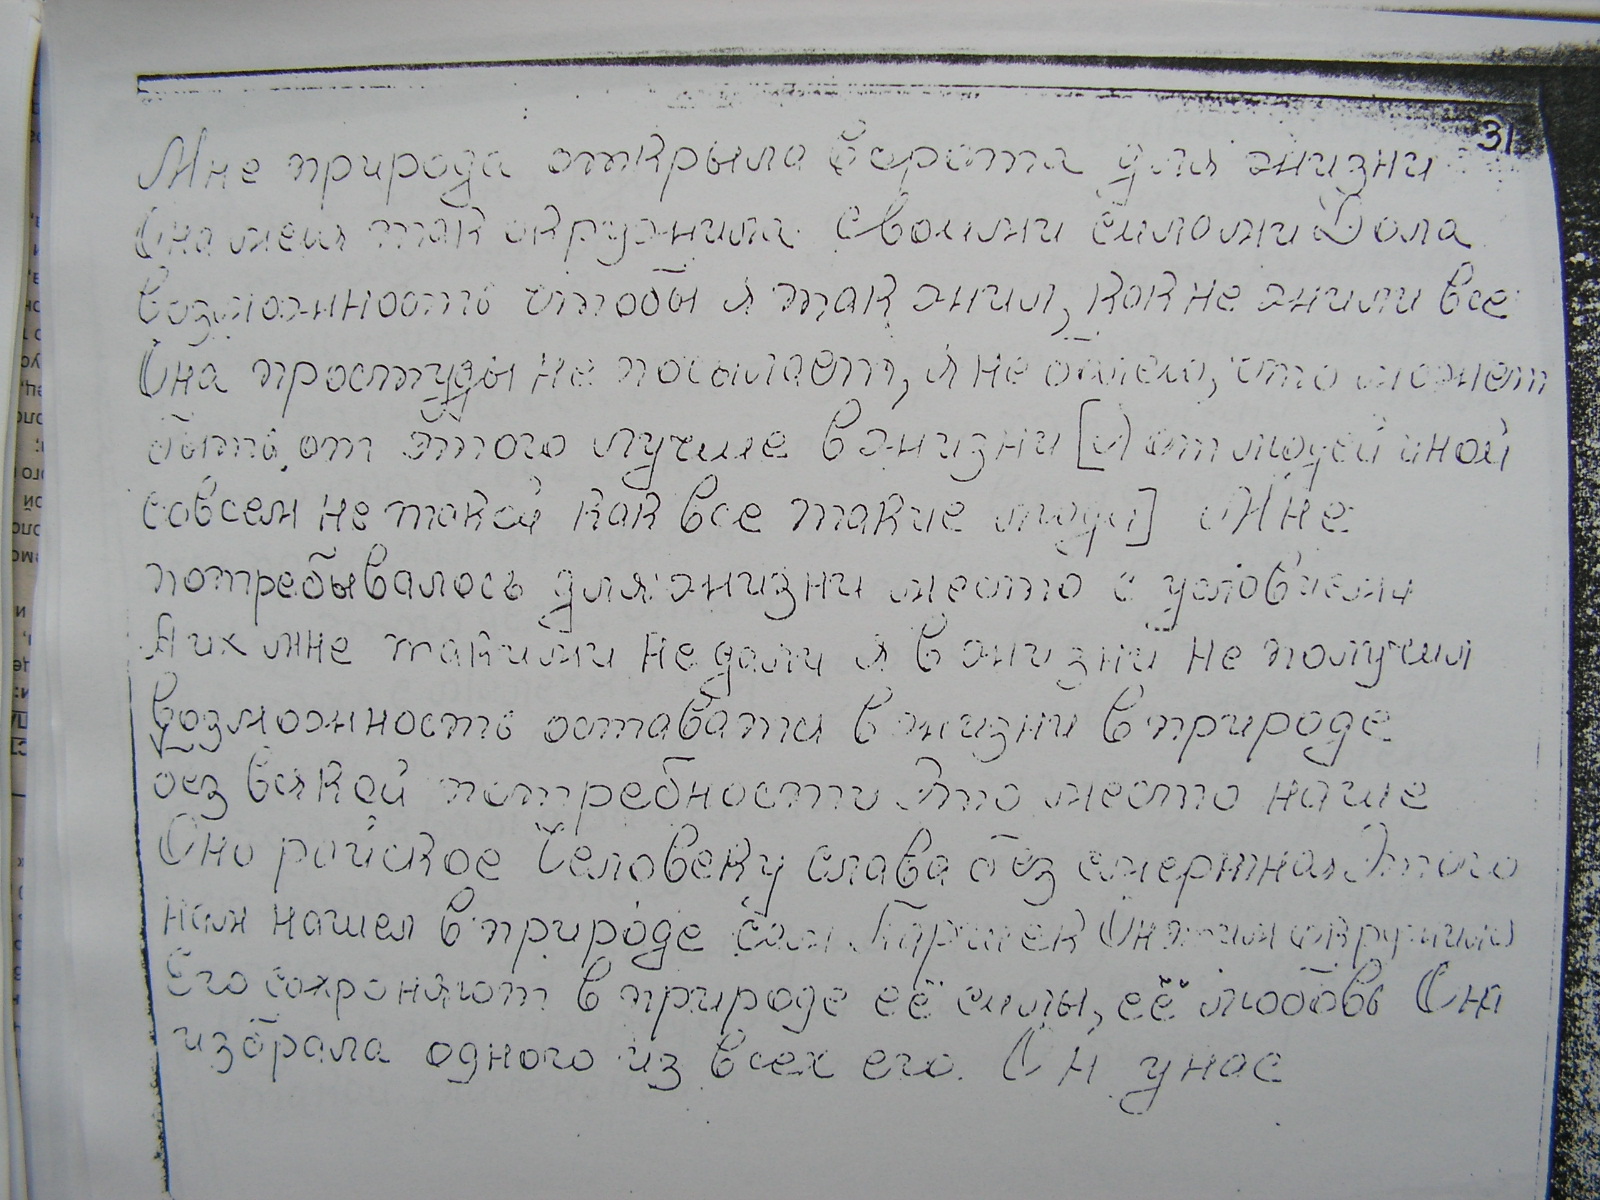 31
Мне природа открыла ворота для жизни
Она меня так окружила своими силами Дала
возможность чтобы я так жил, как не жили все
Она простуды не посылает, я не болею, что может
быть от этого лучше в жизни [Я от людей иной
совсем не такой как все такие люди] Мне
потребывалось для жизни место с условием
А их мне такими не дали я в жизни не получил
возможность оставатся в жизни в природе
без всякой потребности Это место наше
Оно райское Человеку слава безсмертная Этого
нам нашел в природе сам Паршек Он им окружил
Его сохроняют в природе её силы, её любовь Она
избрала одного из всех его. Он у нас